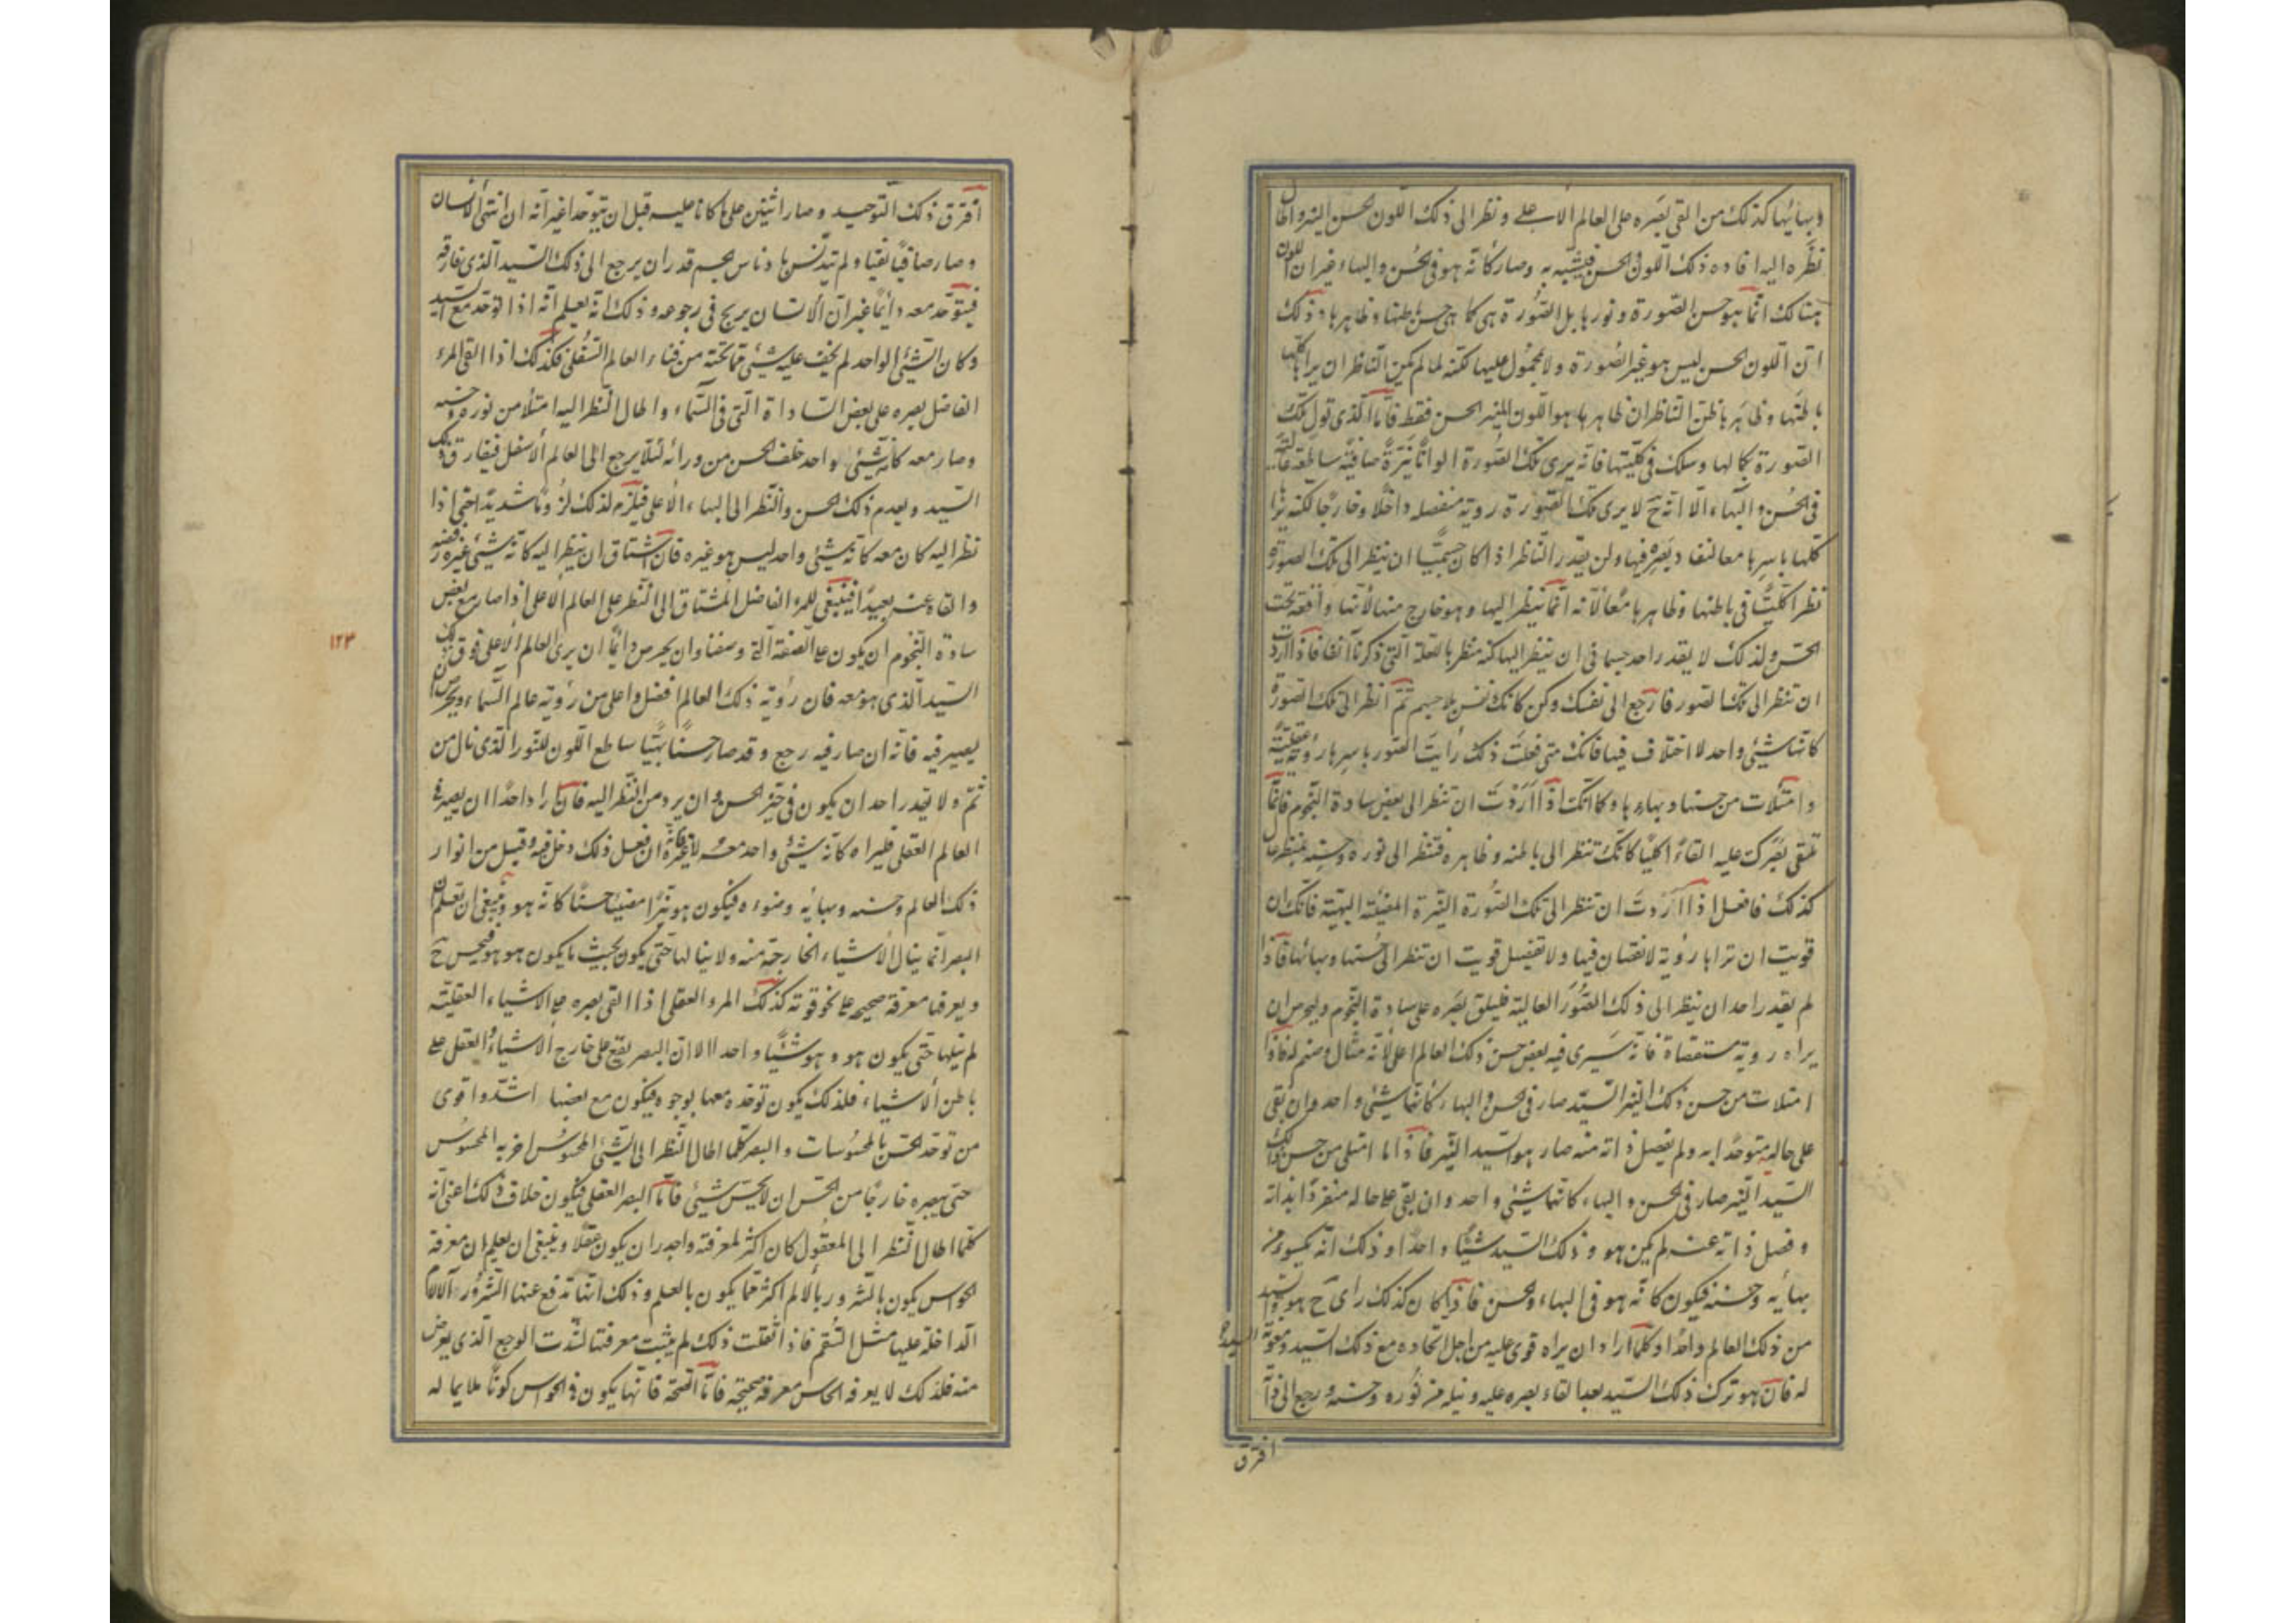 وبهائها كذلك من القى بصره على العالم الاعلى ونظر الى ذلك اللون الحسن النير واطال
نظره اليه افاده ذلك اللون والحسن فيشبه به وصار كأنه هو فى الحسن والبهاء غير ان اللون
هنالك انما هو حسن الصورة ونورها بل الصورة هى كما هى حسن باطنها وظاهرها وذلك
ان اللون الحسن ليس هو غير الصورة ولا محمول عليها لكنه لما لم يمكن الناظر ان يراها كلها
باطنها وظاهرها ظن الناظر ان ظاهرها هو اللون النير الحسن فقط فاما الذى تولى تلك
الصورة بكمالها وسلك فى كليتها فانه يرى تلك الصورة الوانا نيرة صافية ساطعة
فى الحسن والبهاء الا انه ح لا يرى تلك الصورة روية منفصلة داخلا وخارجا لكنه يراها
كلها باسرها معا لنفاد بصره فيها ولن يقدر الناظر اذا كان جسميا ان ينظر الى تلك الصورة
نظرا كليا فى باطنها وظاهرها معا لانه انما ينظر اليها وهو خارج منها لانها واقعة تحت
الحس ولذلك لا يقدر احد جسمانى ان ينظر اليها كنه منظرها للعلة التى ذكرنا آنفا فاذا اردت
ان تنظر الى تلك الصور فارجع الى نفسك وكن كانك نفس بلا جسم ثم انظر الى تلك الصورة
كانها شيئ واحد لا اختلاف فيها فانك متى فعلت ذلك رايت الصور باسرها روية عقلية
وامتلات من حسنها وبهاءها وكما انك اذا اردت ان تنظر الى بعض سادة النجوم فانما
تلقى بصرك عليه القاء كليا كانك تنظر الى باطنه وظاهره فتنظر الى نوره وحسنه
كذلك فافعل اذا اردت ان تنظر الى تلك الصورة النيرة المضيئة البهية فانك ان
قويت ان تراها روية لا نقصان فيها ولا تفصيل قويت ان تنظر الى حسنها وبهائها فاذا
لم يقدر احد ان ينظر الى ذلك الصور العالية فليلق بصره على سادة النجوم وليحرص ان
يراه روية مستقصاة فانه سيرى فيه بعض حسن ذلك العالم الاعلى لانه مثال وصنم له فاذا
امتلات من حسن ذلك النير السيد صار فى الحسن والبهاء كانهما شيئ واحد وان بقى
على حاله متوحدا به ولم يفصل ذاته منه صار هو السيد النير فاذا ما امتلى من حسن ذلك
السيد النير صار فى الحسن والبهاء كانهما شيئ واحد وان بقى على حاله منفردا بذاته
وفصل ذاته عنه لم يكن هو وذلك السيد شيئا واحدا وذلك انه يكسوه من
بهائه وحسنه فيكون كانه هو فى البهاء والحسن فاذا كان كذلك راى ح هو والسيد
من ذلك العالم واحدا وكلما اراد ان يراه قوى عليه من اجل اتحاده مع ذلك السيد ومعونة السيد
له فان هو ترك ذلك السيد بعد القاء بصره عليه ونيله من نوره وحسنه ورجع الى ذاته
افترق
افترق ذلك التوحيد وصارا اثنين على ما كانا عليه قبل ان يتوحدا غير انه ان انتهى الانسان
وصار صافيا نقيا ولم يتدنس بادناس الجسم قدر ان يرجع الى ذلك السيد الذى فارقه
فيتوحد معه دائما غير ان الانسان يربح فى رجوعه وذلك انه يعلم انه اذا توحد مع السيد
وكان الشيئ الواحد لم يخف عليه شيئ مما تحته من فناء العالم السفلى فكذلك اذا القى المرء
الفاضل بصره على بعض السادة التى فى السماء واطال النظر اليه امتلأ من نوره وحسنه
وصار معه كانه شيئ واحد خلف الحسن من ورائه لئلا يرجع الى العالم الاسفل فيفارق ذلك
السيد ويعدم ذلك الحسن والنظر الى البهاء الاعلى فيلزم لذلك لزوما شديدا حتى اذا
نظر اليه كان معه كانه شيئ واحد ليس هو غيره فان اشتاق ان ينظر اليه كانه شيئ غيره رفضه
والقاه عنه بعيدا فينبغى للمرء الفاضل المشتاق الى النظر على العالم الاعلى اذا صار مع بعض
سادة النجوم ان يكون على الصفة التى وصفنا وان يحرص دائما ان يرى العالم الاعلى فوق ذلك
السيد الذى هو معه فان رؤية ذلك العالم افضل واعلى من رؤية عالم السماء ويحرص ان
يصير فيه فانه ان صار فيه رجع وقد صار حسنا بهيا ساطع اللون للنور الذى نال من
ثم ولا يقدر احد ان يكون فى حيز الحسن وان يرد من النظر اليه فان اراد احدا ان يصير فى
العالم العقلى فليراه كانه شيئ واحد معه لا غيره فانه ان فعل ذلك دخل فيه وقبل من انوار
ذلك العالم وحسنه وبهائه وضوءه فيكون هو نيرا مضيئا حسنا كانه هو وينبغى ان تعلم ان
البصر انما ينال الاشياء الخارجة منه ولا ينالها حتى يكون بحيث ما يكون هو هو فيحس ح
ويعرفها معرفة صحيحه على نحو قوته كذلك المرء العقلى اذا القى بصره على الاشياء العقلية
لم ينلها حتى يكون هو وهى شيئا واحدا الا ان البصر يقع على خارج الاشياء والعقل على
باطن الاشياء فلذلك يكون توحده معها بوجوه فيكون مع بعضها اشد واقوى
من توحد الحس بالمحسوسات والبصر كلما اطال النظر الى الشيئ المحسوس اضر به المحسوس
حتى يصيره خارجا من الحس ان لا يحس شيئ فاما البصر العقلى فيكون خلاف ذلك اعنى انه
كلما اطال النظر الى المعقول كان اكثر لمعرفته واجدر ان يكون عقلا وينبغى ان يعلم ان معرفة
الحواس يكون بالشرور بالالم اكثر مما يكون بالعلم وذلك انها تدفع عنها الشرور الآلام
الداخلة عليها مثل السقم فاذا اثقلت ذلك لم يثبت معرفتها لشدت الوجع الذى يعرض
منه فلذلك لا يعرف الحاس معرفة صحيحة فاما الصحة فانها يكون فى الحواس كونا ملايما له
١٢٣